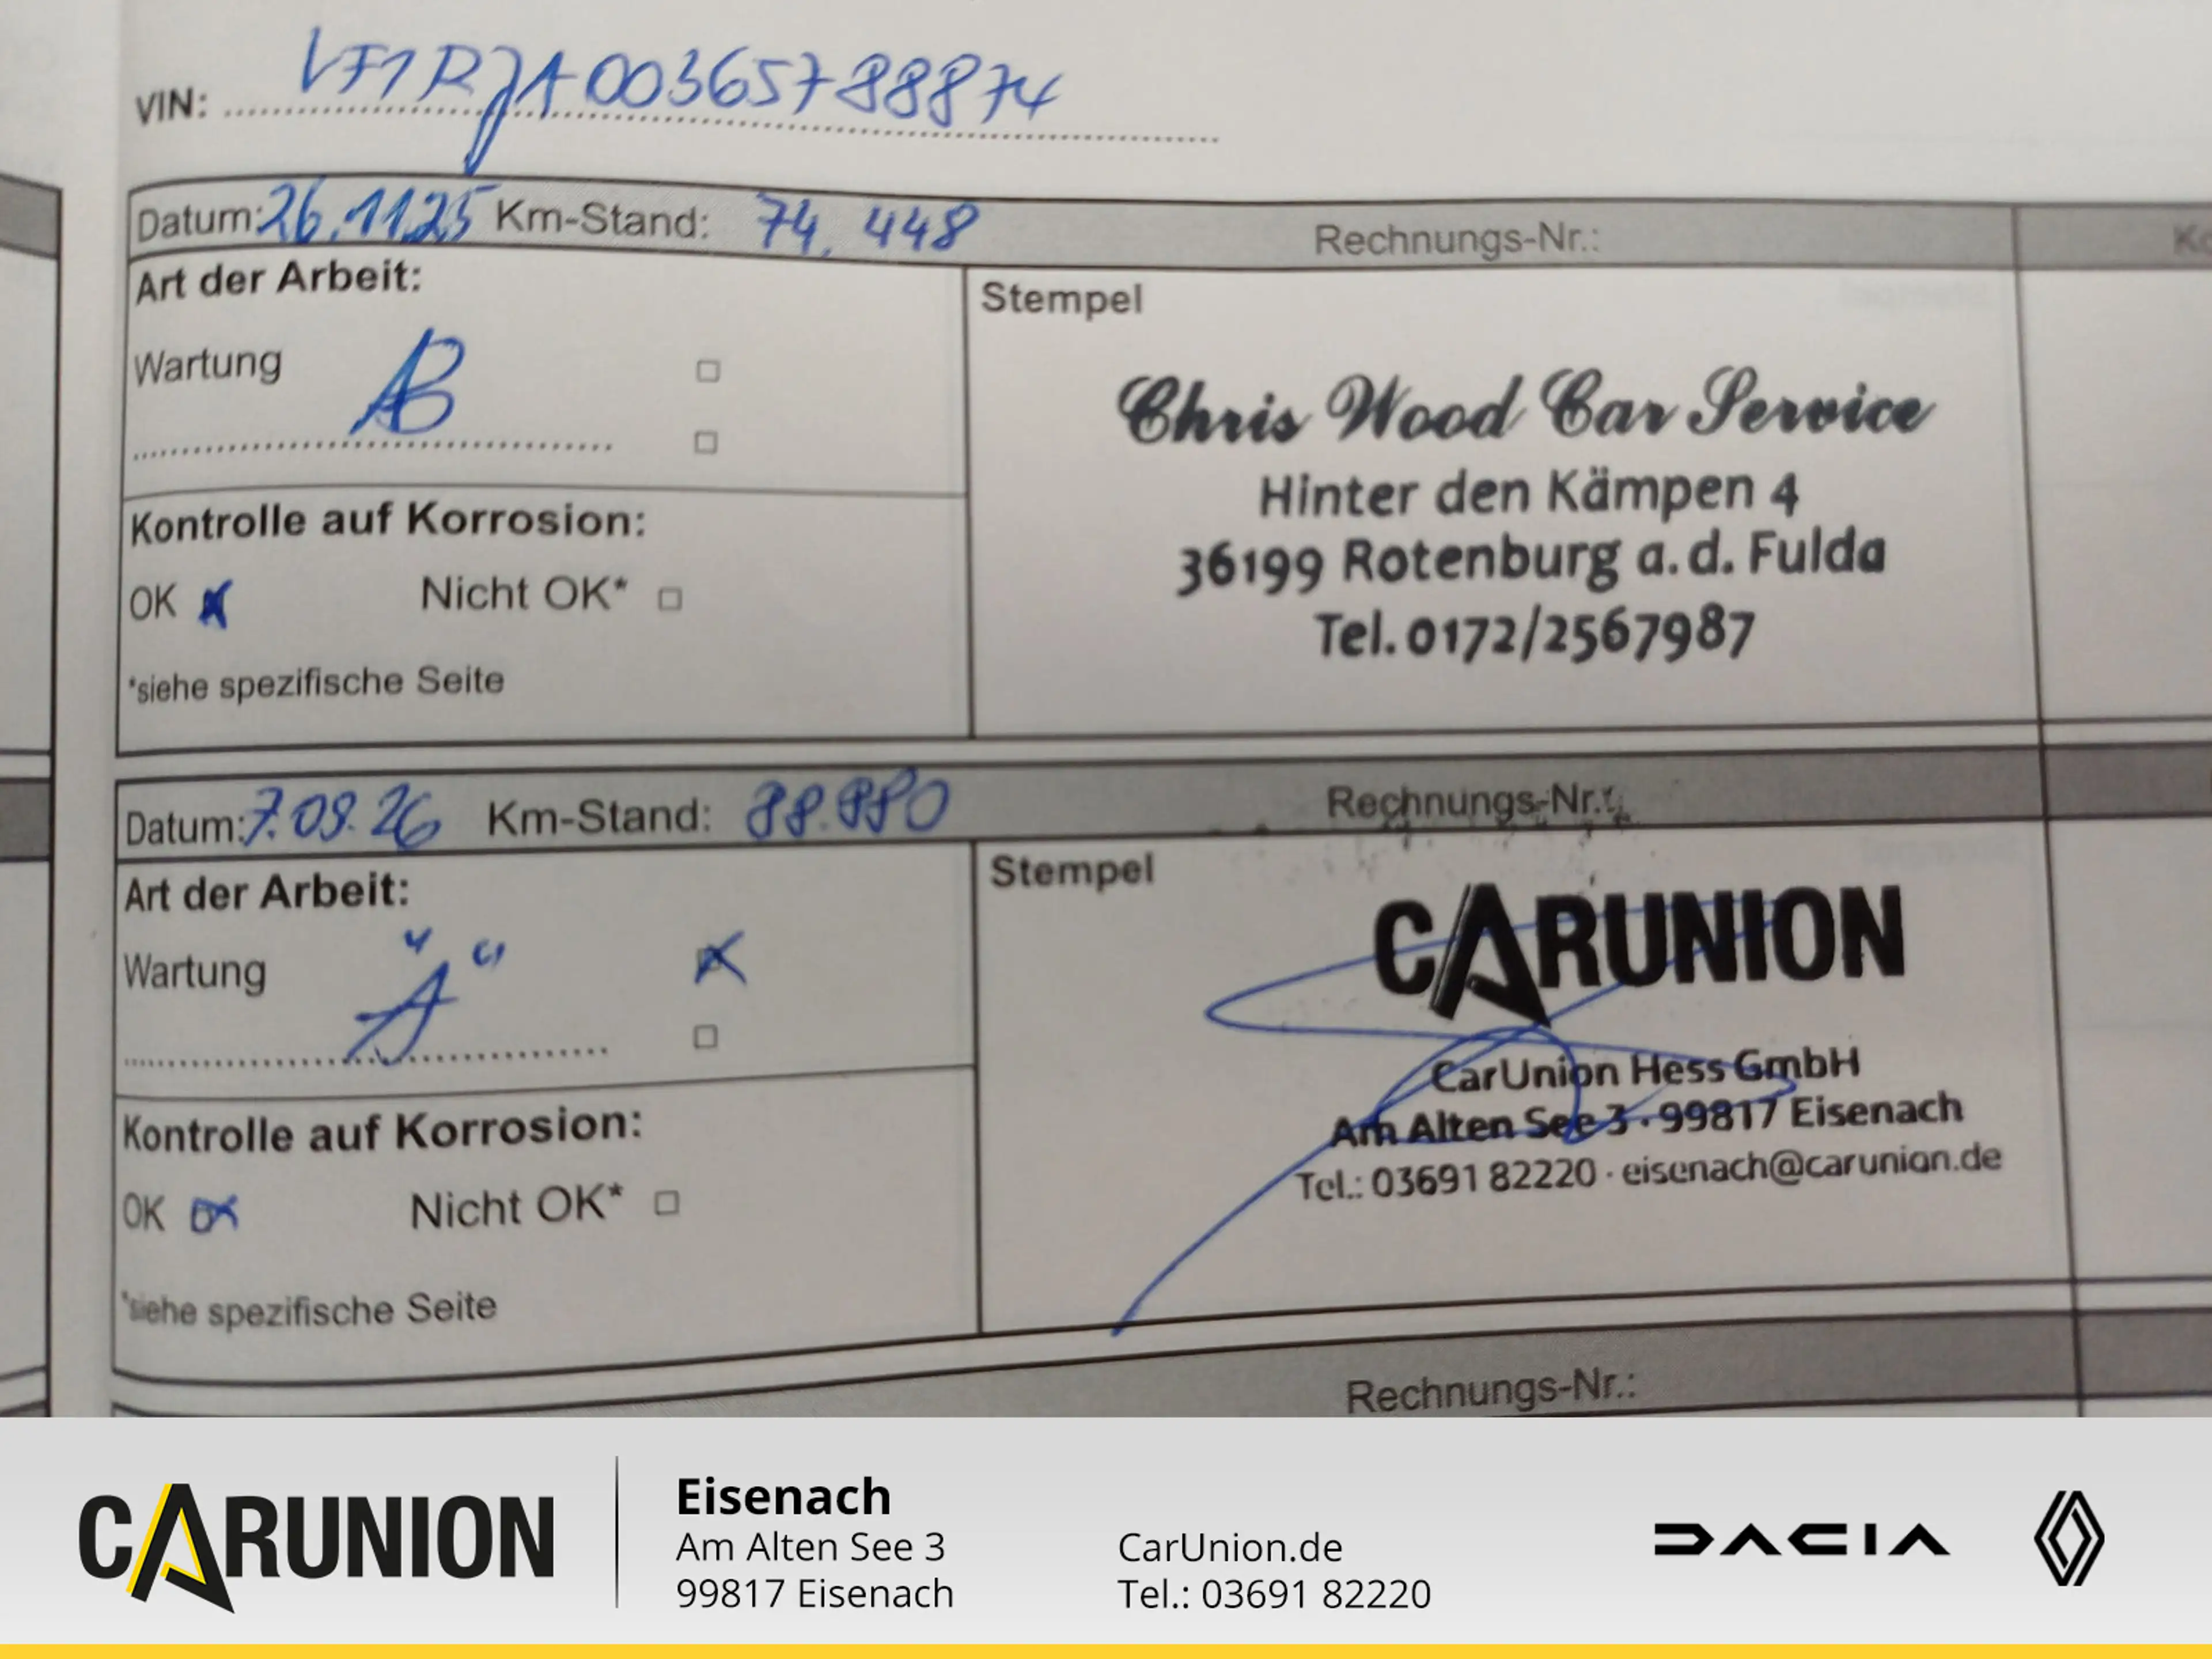 VIN: VF1RJA00365788874
Datum: 26.11.25 Km-Stand: 74.448 Rechnungs-Nr.:
Art der Arbeit:
Wartung AB
Kontrolle auf Korrosion:
OK Nicht OK*
*siehe spezifische Seite
Stempel
Chris Wood Car Service
Hinter den Kämpen 4
36199 Rotenburg a.d. Fulda
Tel. 0172/2567987
Datum: 7.09.26 Km-Stand: 88.880 Rechnungs-Nr.:
Art der Arbeit:
Wartung "A"
Kontrolle auf Korrosion:
OK Nicht OK*
*siehe spezifische Seite
Stempel
CARUNION
CarUnion Hess GmbH
Am Alten See 3 · 99817 Eisenach
Tel.: 03691 82220 · eisenach@carunion.de
Rechnungs-Nr.:
CARUNION
Eisenach
Am Alten See 3
99817 Eisenach
CarUnion.de
Tel.: 03691 82220
DACIA